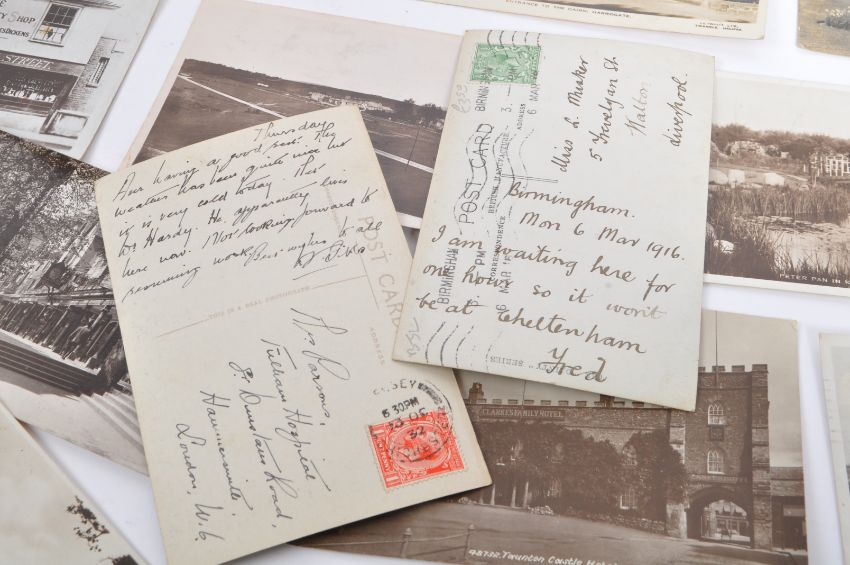 SHOP
STREET
ENTRANCE TO THE CAIRN, HARROGATE.
Thursday
Am having a good rest. The
weather has been quite nice but
it is very cold today. Met
Dr Hardy. He apparently lives
here now. Not looking forward to
resuming work. Best wishes to all
POST CARD
THIS IS A REAL PHOTOGRAPH
ADDRESS
Mrs Parsons,
Fulham Hospital
St Dunstans Road,
Hammersmith,
London, W.6
6.30PM
32
BIRMINGHAM
6 MAR
POST CARD
BRITISH MANUFACTURE
CORRESPONDENCE
ADDRESS
BIRMINGHAM
PM
6 MAR 16
SERIES
Miss L. Musker
5 Trevelyan St
Walton
Liverpool
Birmingham.
Mon 6 Mar 1916.
I am waiting here for
one hour so it won't
be at Cheltenham
Fred
PETER PAN IN
CLARKES FAMILY HOTEL
Taunton Castle Hotel